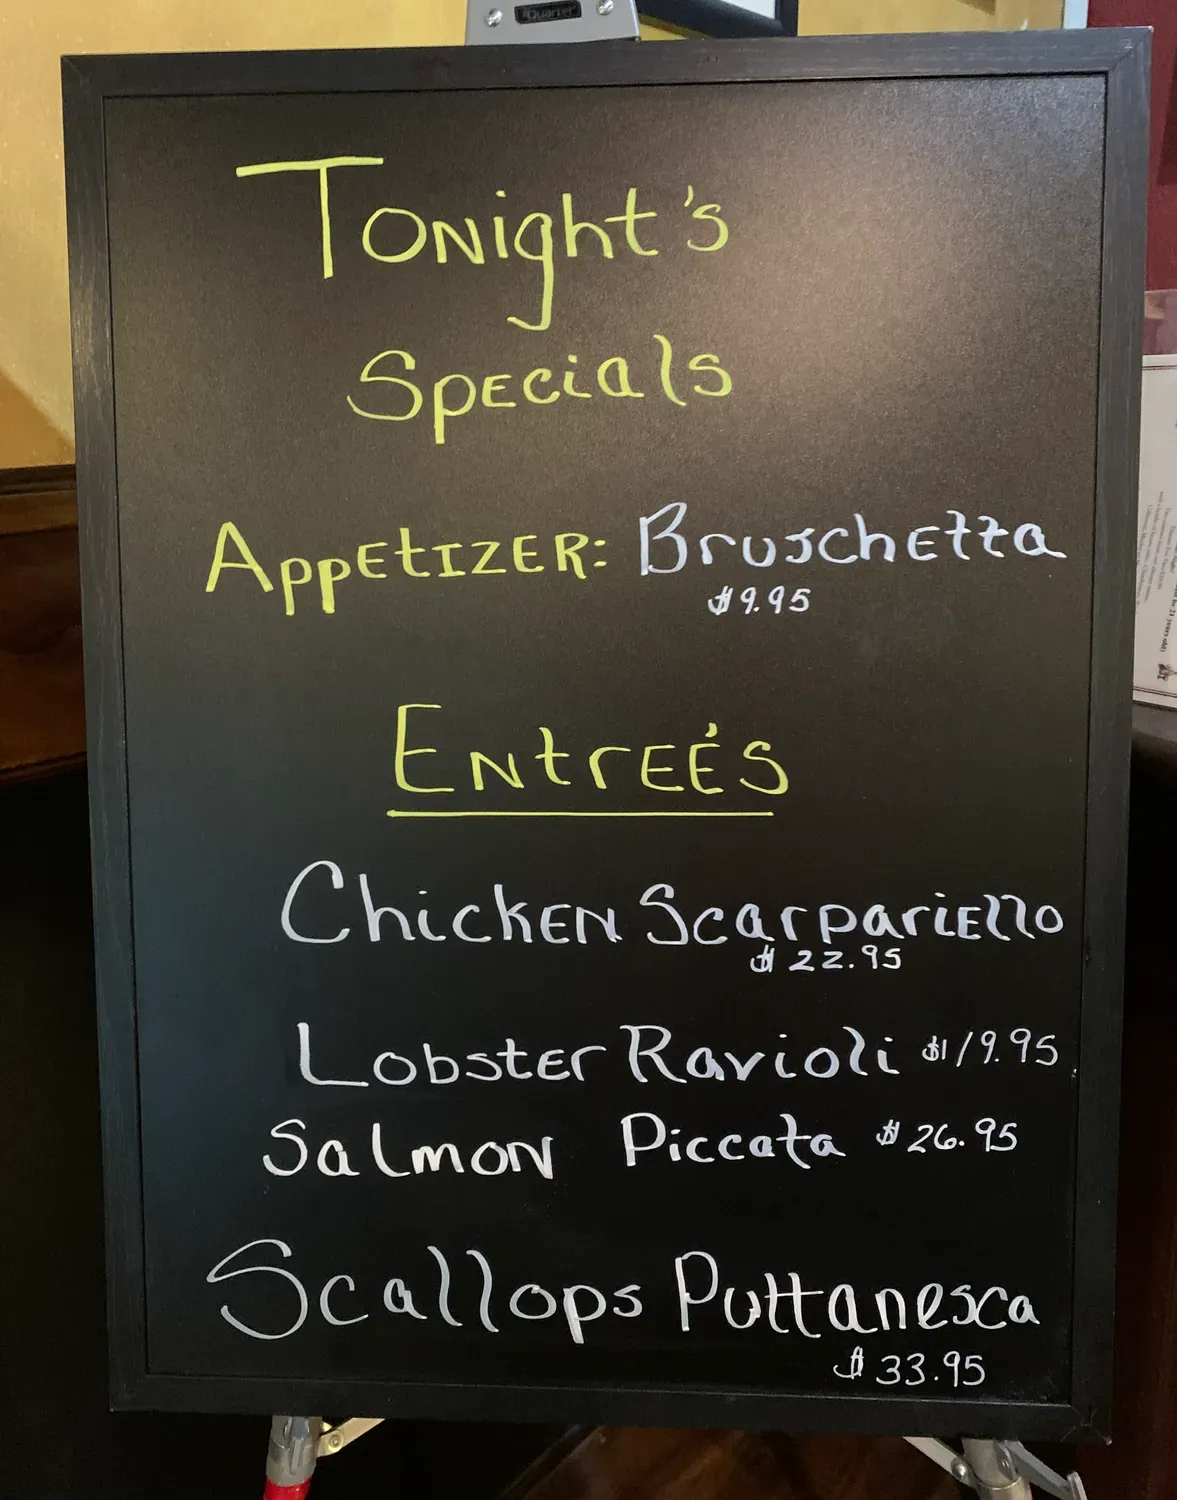 "Quartet"
Tonight's
Specials
Appetizer: Bruschetta
$9.95
Entreés
Chicken Scarpariello
$22.95
Lobster Ravioli $19.95
Salmon Piccata $26.95
Scallops Puttanesca
$33.95